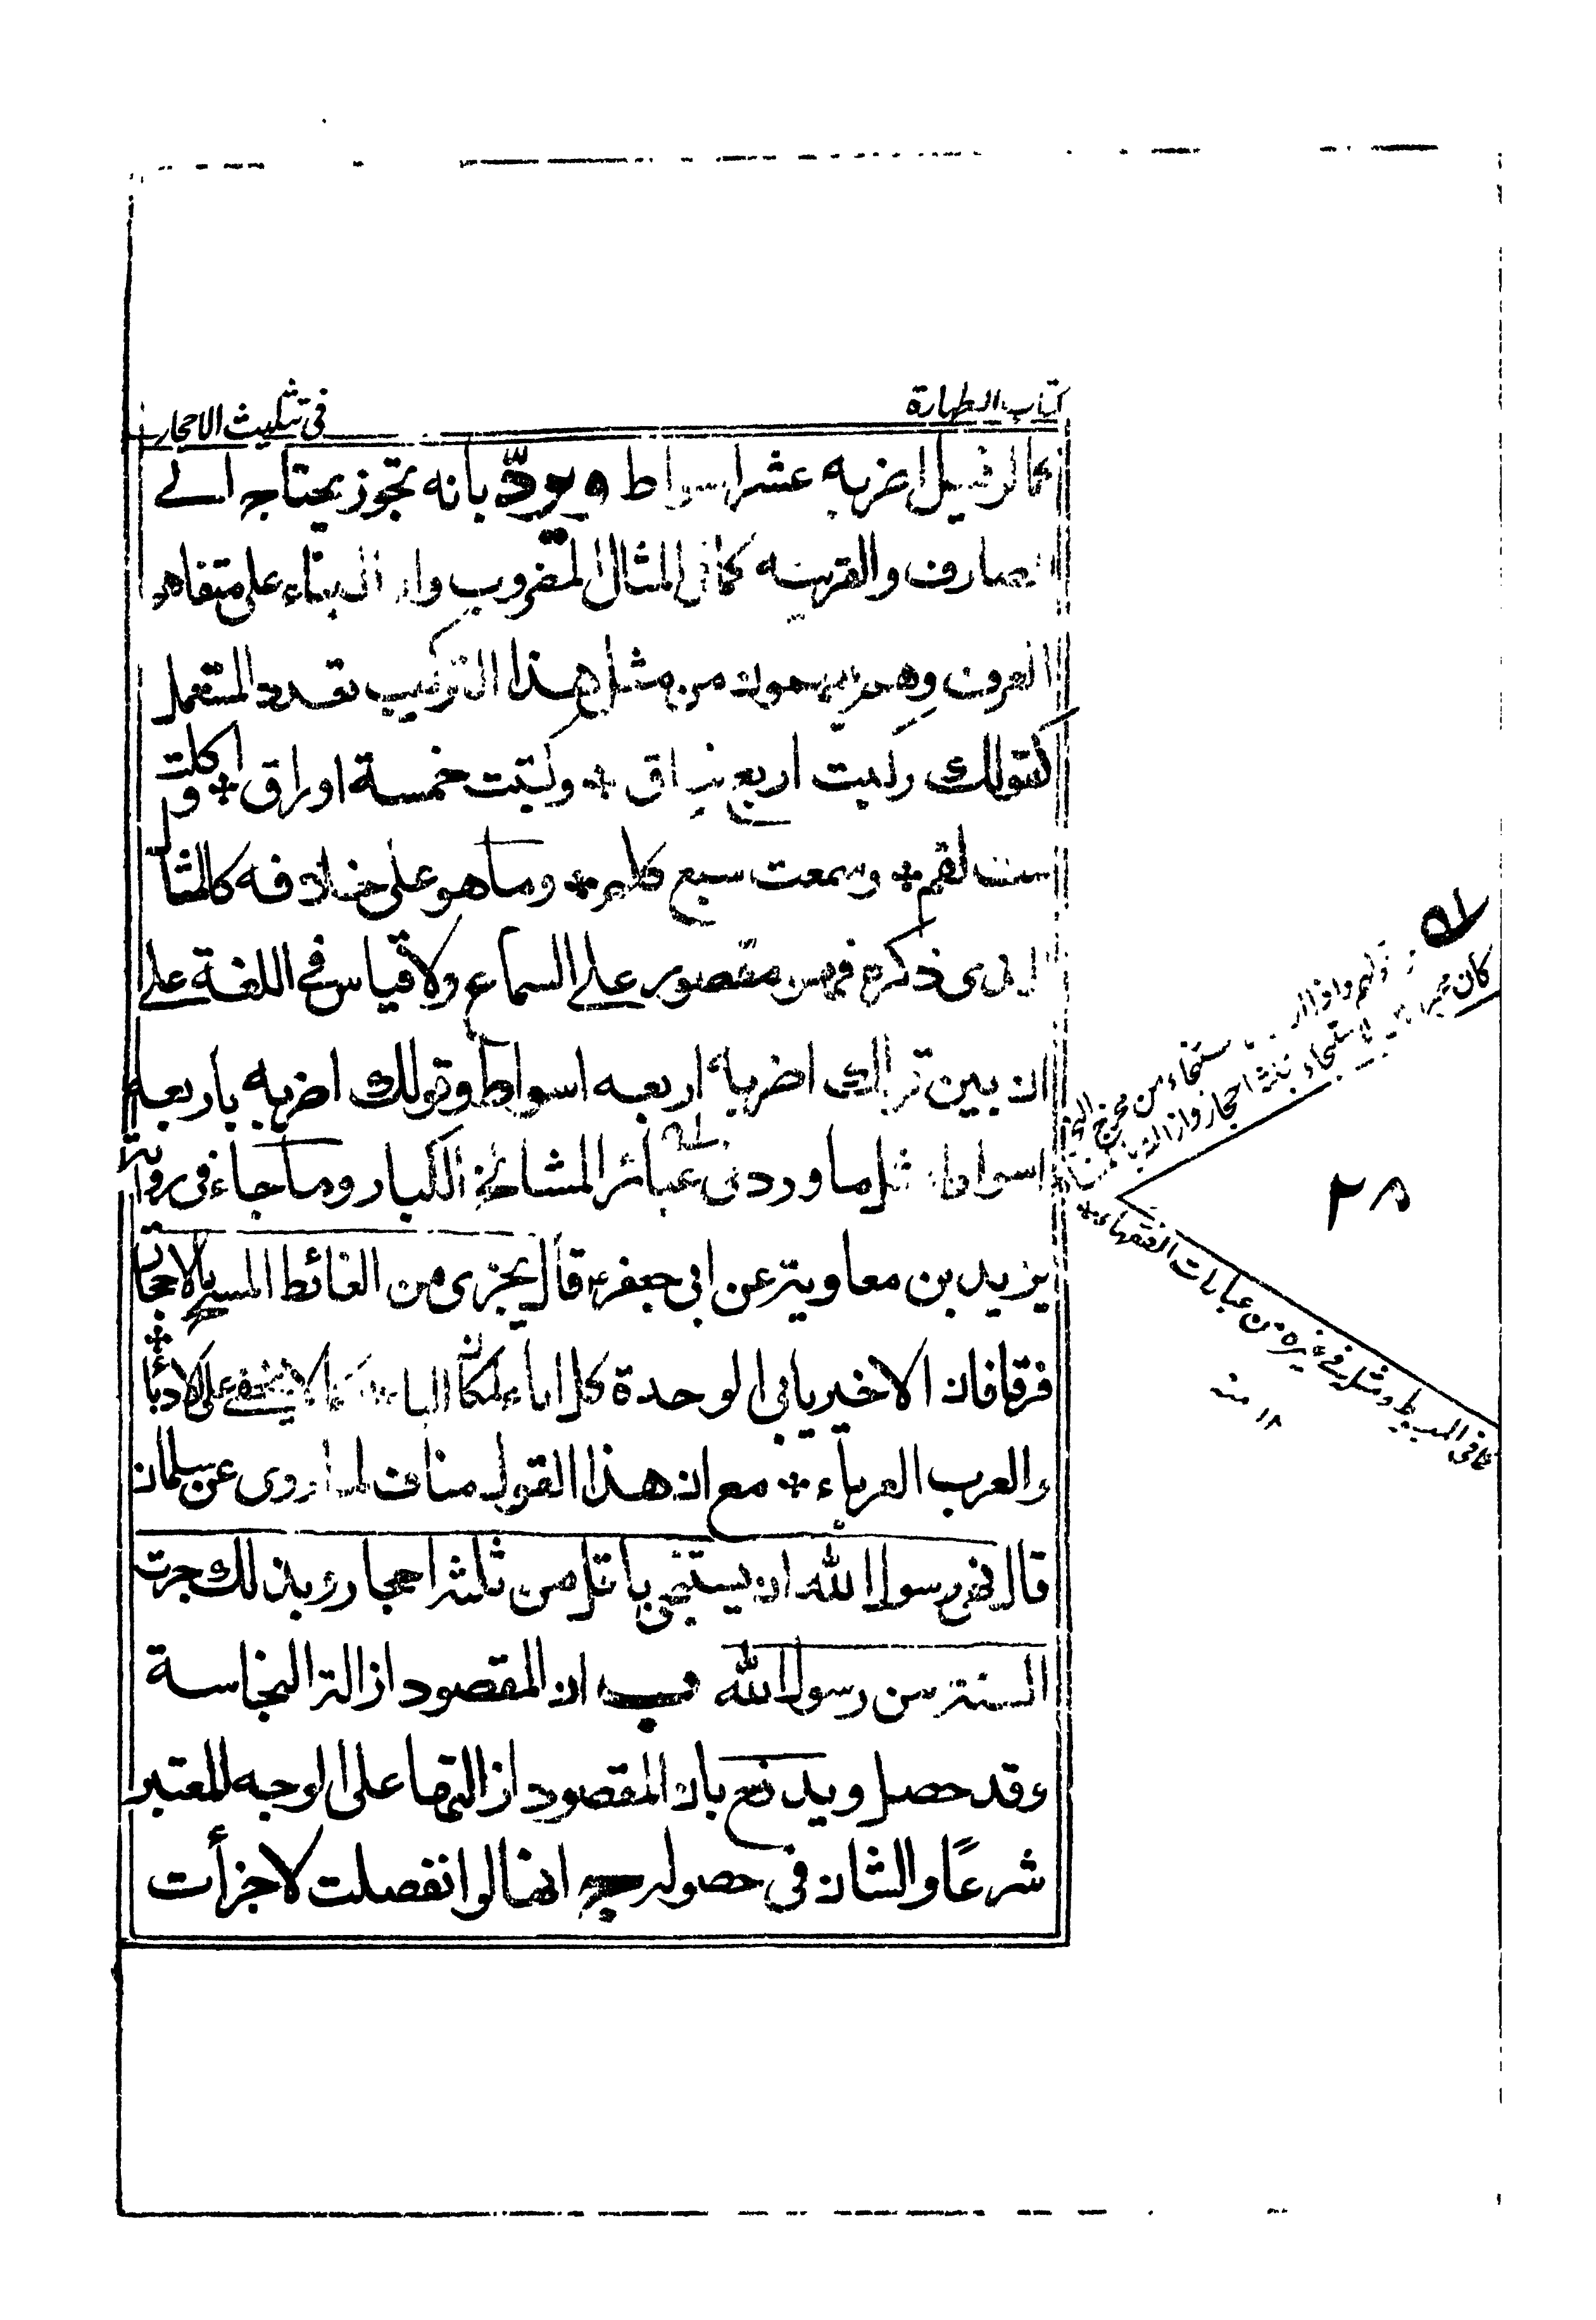 كتاب الطهارة
في تثليث الاحجار
كما لو قيل اضربه عشر اسواط ويردّ بانه تجوز يحتاج الے
الصارف والقرينه كما في المثال المضروب وان البناء على متفاهم
العرف وهم يفهمون من مثل هذا التركيب تعدد المستعمل
كقولك ركبت اربع نياق * وكتبت خمسة اوراق * واكلت
ست لقم * وسمعت سبع كلم * وما هو على خلافه كالمثال
الذى ذكره فمن مقصور علے السماع ولا قياس فے اللغة علے
ان بين قولك اضربه اربعه اسواط وقولك اضربه باربعه
اسواط مثل ما ورد فى عبائر المشائخ الكبار وما جاء فى رواية
يزيد بن معاوية عن ابى جعفرع قال يجزى من الغائط المسح بالاحجار
فرقا فان الاخير يابى الوحدة كل اباء لمكان الباء كما لا يخفے على الادباء *
والعرب العرباء * مع ان هذا القول مناف لما روى عن سلمان
قال نهى رسول الله ان يستنجى باقل من ثلثة احجار وبذلك جرت
السنة من رسول الله ب ان المقصود ازالة النجاسة
وقد حصل ويدفع بان المقصود ازالتها على الوجه المعتبر
شرعًا والشان فى حصوله ج انها لو انفصلت لاجزأت
قولهم واذا اراد الاستنجاء من مخرج النجو
كان الاستنجاء بثلثة احجار
كما فى المبسوط ومثله فى غيره من عبارات الفقهاء *
١٨ منه
٢٨